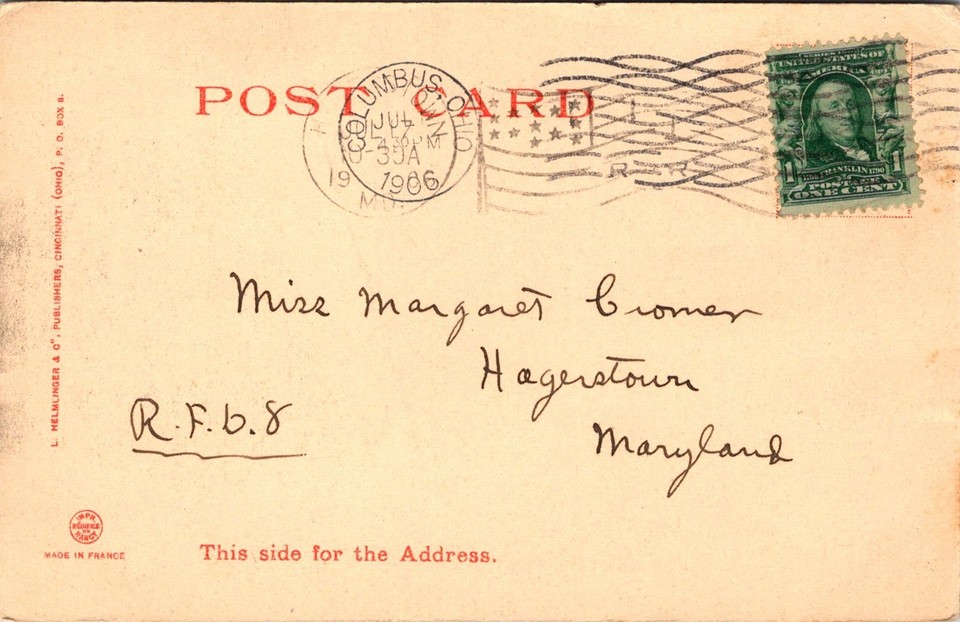 POST CARD
COLUMBUS, OHIO
JUL
1906
MD.
R R
SERIES 1902
UNITED STATES OF
AMERICA
1 1
FRANKLIN
POSTAGE
ONE CENT
Miss Margaret Cromer
Hagerstown
R.F.D.8
Maryland
L. HELMLINGER & Cº, PUBLISHERS, CINCINNATI (OHIO), P. O. BOX 8.
IMPR
RÉUNIES
DE
NANCY
MADE IN FRANCE
This side for the Address.